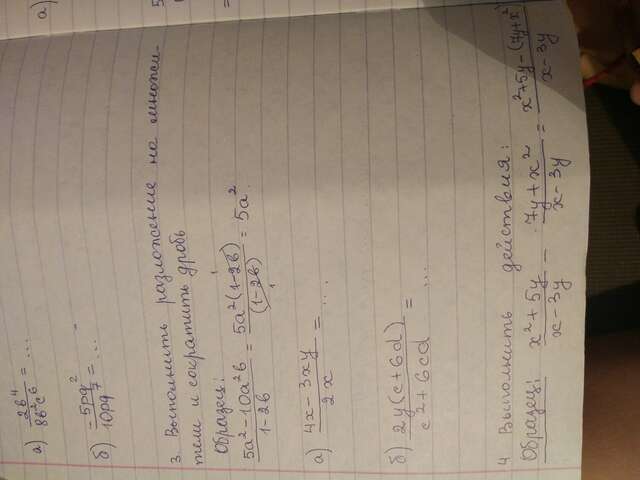 а) 2b⁴/8b²c⁶ = ...
б) -5pq²/10pq⁷ = ...
3. Выполнить разложение на множи-
тели и сократить дробь
Образец:
5a²-10a²b/1-2b = 5a²(1-2b)/(1-2b) = 5a².
а) 4x-3xy/2x = ...
б) 2y(c+6d)/c²+6cd = ...
4 Выполнить действия:
Образец: x²+5y/x-3y - 7y+x²/x-3y = x²+5y-(7y+x²)/x-3y
а)
5
=